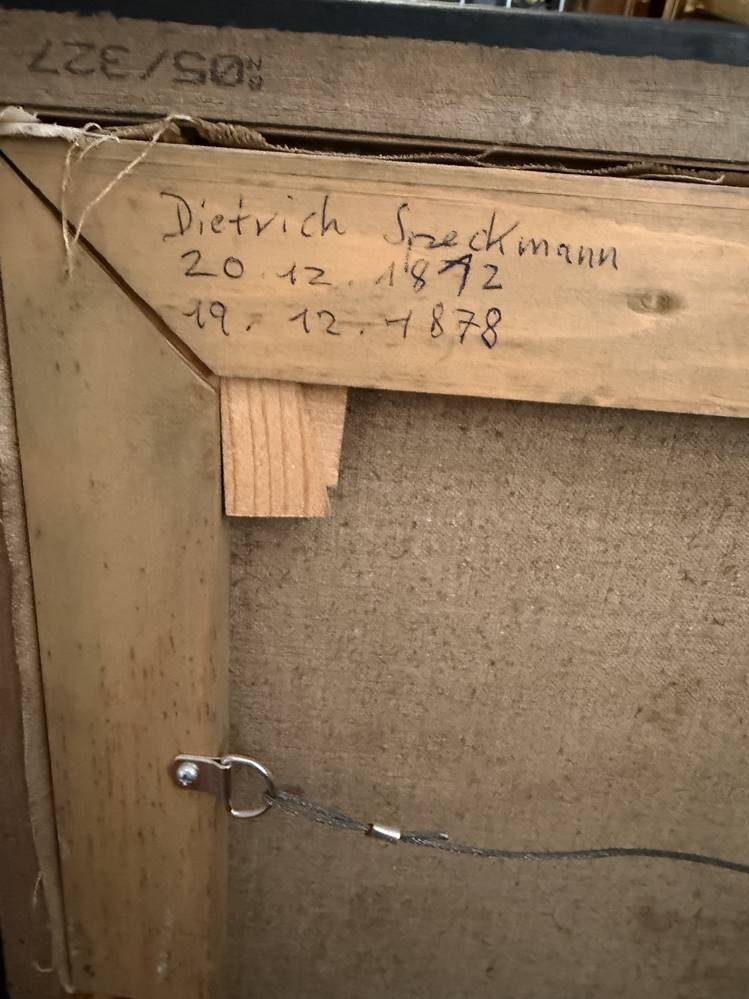 No 05/327
Dietrich Speckmann
20.12.1812
19.12.1878